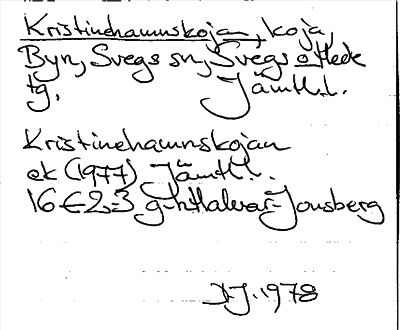 Kristinehamnskojan, koja,
Byn, Svegs sn, Svegs o Hede
tg, Jämtl.l.
Kristinehamnskojan
ek (1977) Jämtl l.
16 E 2-3 g-h Hälvar-Jonsberg
I-J. 1978